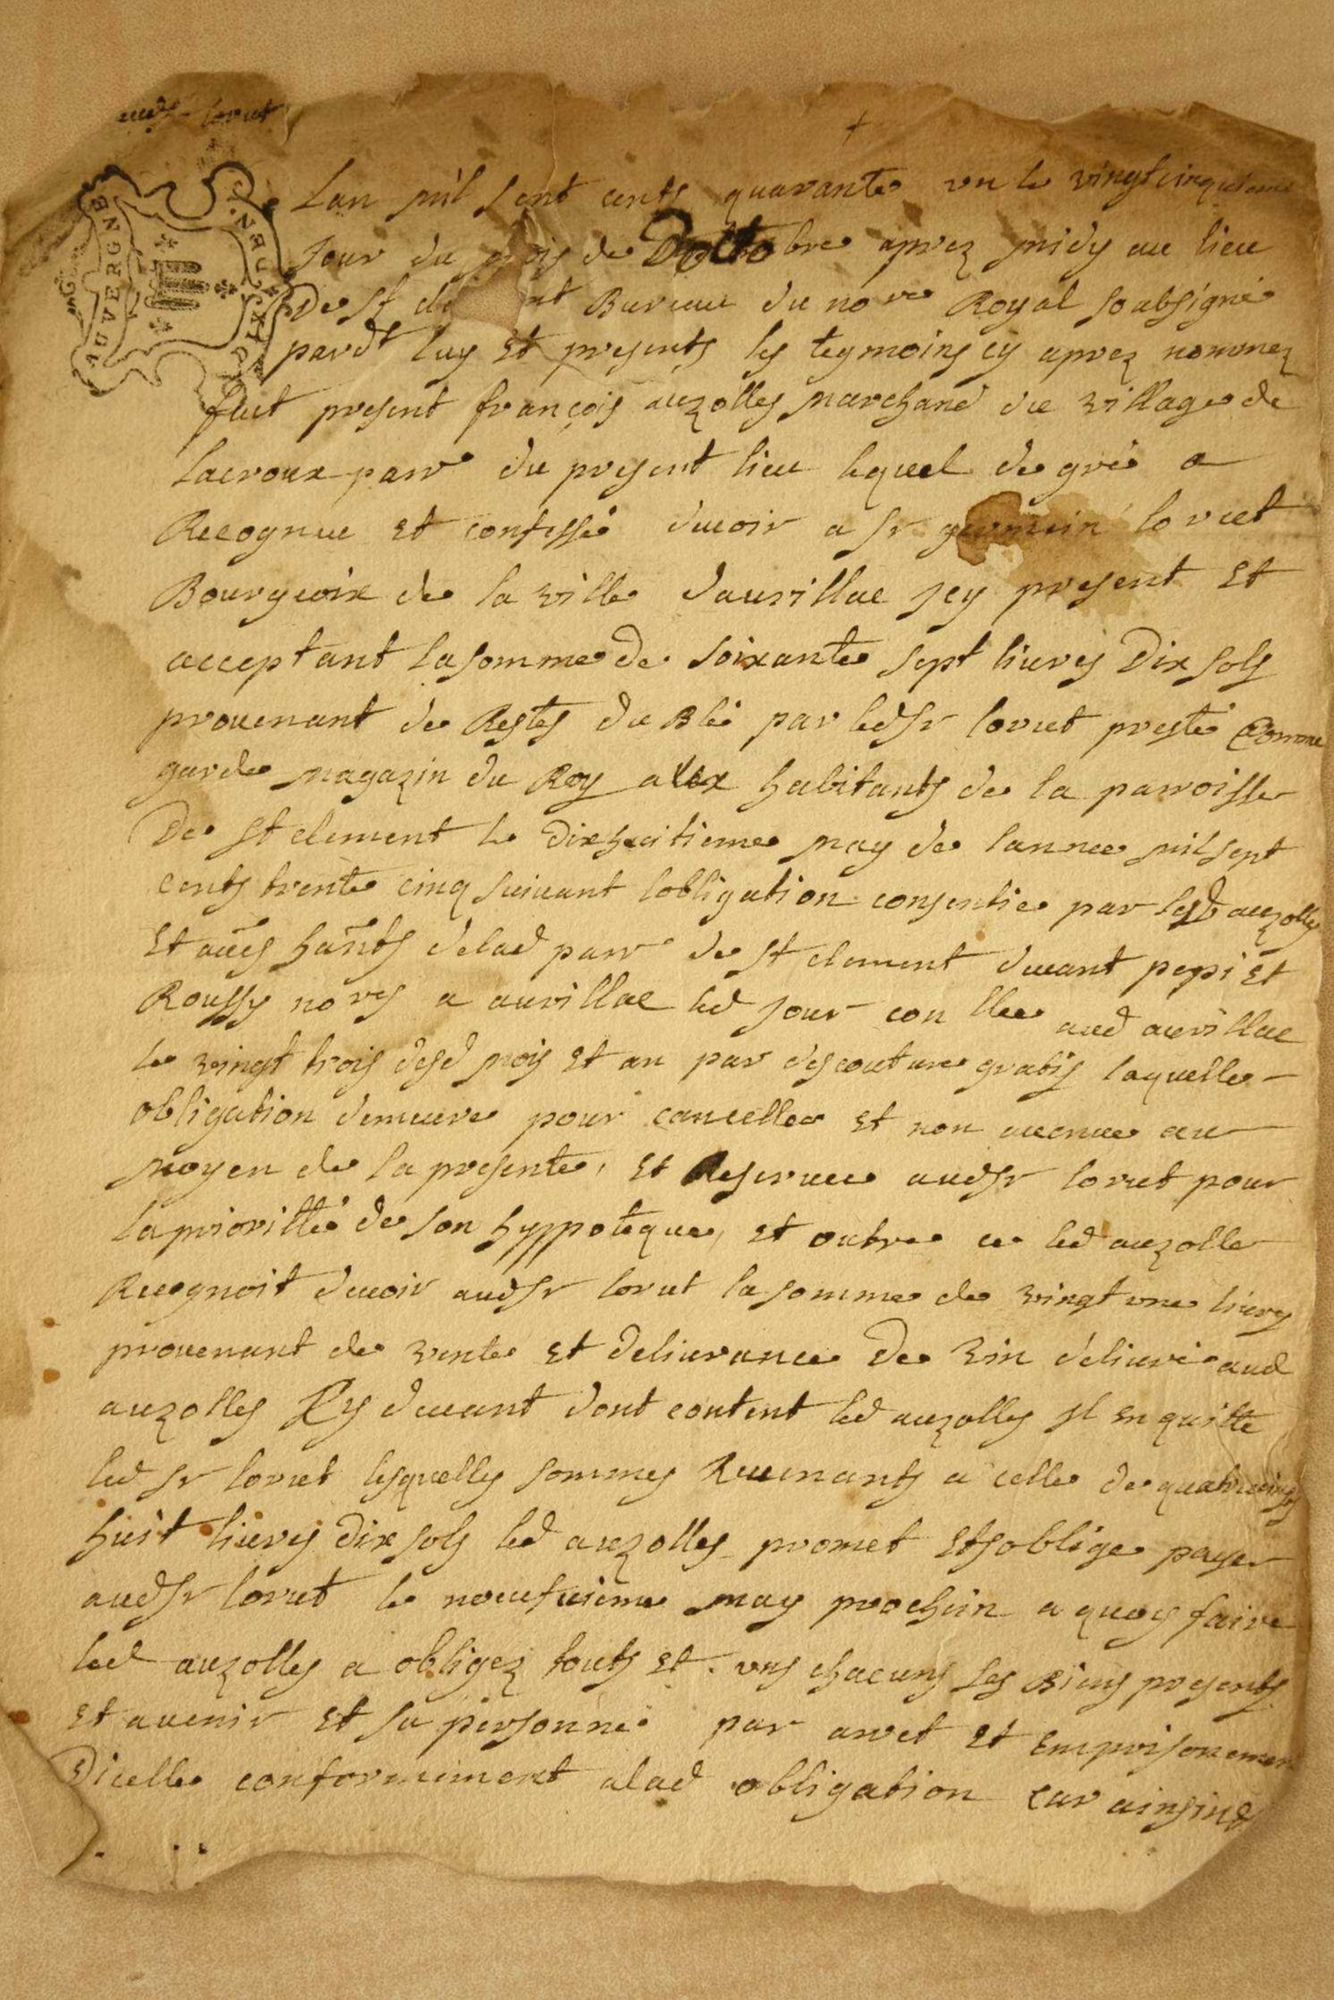 audsr lorut
AUVERGNE
UN. SIX D
Lan mil sept cents quarante un le vingtcinquieme
jour du mois de Octobre aprez midy au lieu
De st cle ent Bureau du nore Royal soubsigné
pardt luy Et presents les tesmoins cy aprez nommez
fut present françois auzolles marchand du village de
Lacroux parr du present lieu lequel de gré a
Recognu et confessé devoir a sr germain lorut
Bourgeoix de la ville daurillac jcy present Et
acceptant la somme de soixante sept livres Dix sols
provenant de Restes du Blé par ledsr lorut presté Comme
garde magazin du Roy aux habitants de la parroisse
De st clement le Dixhuitieme may de lannee mil sept
cents trente cinq suivant lobligation consentie par lesd auzolles
Et aues hants delad parr de st clement devant pepi Et
Roussy nores a aurillac led jour con llee aud aurillac
le vingt trois desd mois Et an par descouture gratis laquelle
obligation demeure pour cancellee Et non avenue au
moyen de la presente, Et Reservee audsr lorut pour
la prioritté de son hyppoteque, Et outre ce led auzolles
Recognoit devoir audsr lorut la somme de vingt une livres
provenant de vente Et delivrance De vin delivré aud
auzolles Cy devant dont content led auzolles jl En quitte
led sr lorut lesquelles sommes Revenants a celle de quatre vingts
huit livres Dix sols led auzolles promet Et soblige payer
audsr lorut le neufvieme may prochain a quoy faire
led auzolles a obligez touts Et uns chacuns ses Biens presents
Et avenir Et sa personne par arret Et Emprisonement
Dicelle conformement alad obligation car ainsin &